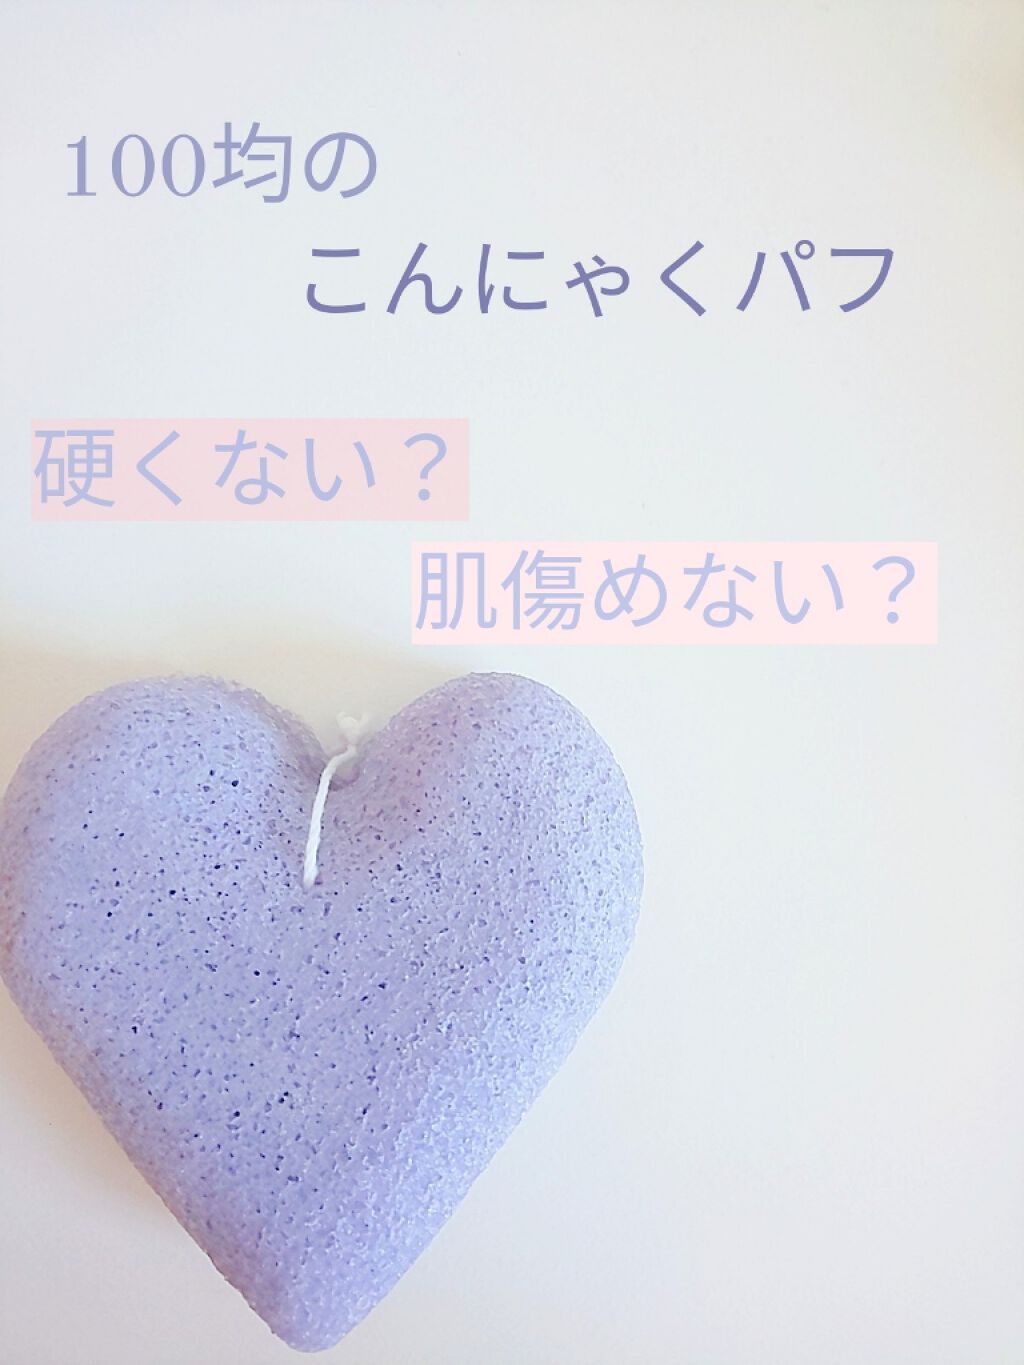 100均の
こんにゃくパフ
硬くない？
肌傷めない？